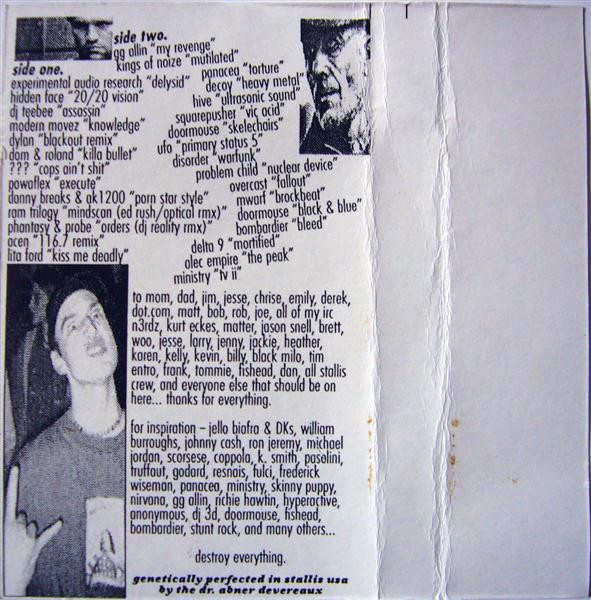 side one.
experimental audio research "delysid"
hidden face "20/20 vision"
dj teebee "assassin"
modern movez "knowledge"
dylan "blackout remix"
dom & roland "killa bullet"
??? "cops ain't shit"
powaflex "execute"
danny breaks & ak1200 "porn star style"
ram trilogy "mindscan (ed rush/optical rmx)"
phantasy & probe "orders (dj reality rmx)"
acen "116.7 remix"
lita ford "kiss me deadly"
side two.
gg allin "my revenge"
kings of noize "mutilated"
panacea "torture"
decoy "heavy metal"
hive "ultrasonic sound"
squarepusher "vic acid"
doormouse "skelechairs"
ufo "primary status 5"
disorder "warfunk"
problem child "nuclear device"
overcast "fallout"
mwarf "brockbeat"
doormouse "black & blue"
bombardier "bleed"
delta 9 "mortified"
alec empire "the peak"
ministry "tv ii"
to mom, dad, jim, jesse, chrise, emily, derek,
dot.com, matt, bob, rob, joe, all of my irc
n3rdz, kurt eckes, matter, jason snell, brett,
woo, jesse, larry, jenny, jackie, heather,
karen, kelly, kevin, billy, black milo, tim
entro, frank, tommie, fishead, dan, all stallis
crew, and everyone else that should be on
here... thanks for everything.
for inspiration – jello biafra & DKs, william
burroughs, johnny cash, ron jeremy, michael
jordan, scorsese, coppola, k. smith, pasolini,
truffaut, godard, resnais, fulci, frederick
wiseman, panacea, ministry, skinny puppy,
nirvana, gg allin, richie hawtin, hyperactive,
anonymous, dj 3d, doormouse, fishead,
bombardier, stunt rock, and many others...
destroy everything.
genetically perfected in stallis usa
by the dr. abner devereaux